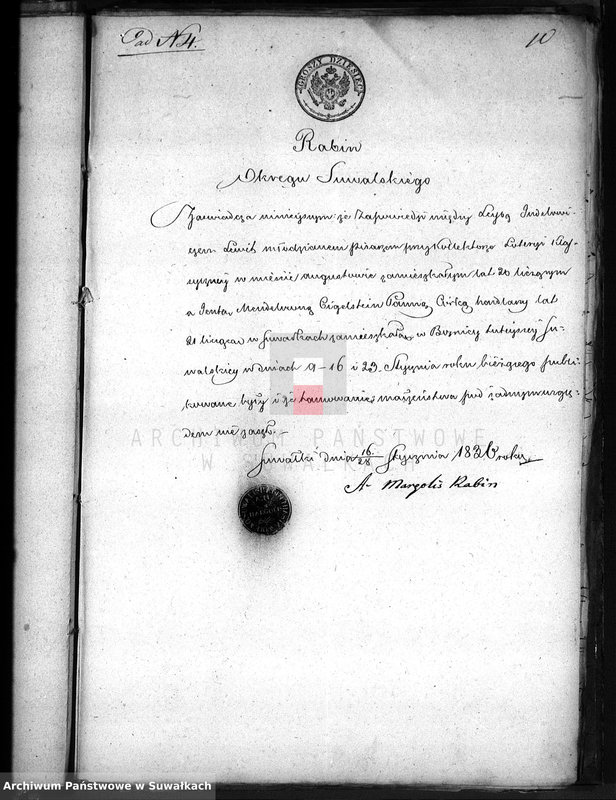 Ad N 4.
10
GROSZY DZIESIĘĆ
Rabin
Okręgu Suwalskiego
Zaświadcza ninieyszym że Zapowiedzi między Leybą Judelowi-
czem Lewit młodzianem pisarzem przy Kollektorze Loteryi Klas-
syczney w mieście Augustowie zamieszkałym lat 20 liczącym
a Jentą Mendelowną Cigelstein Panną Córką handlarza lat
21 liczącą w Suwałkach zamieszkałą w Bożnicy tuteyszey Su-
walskiey w dniach 9-16 i 23 Stycznia roku bieżącego publi-
kowane były i że tamowanie małżeństwa pod żadnym wzglę-
dem nie zaszło.-
Suwałki dnia 16/28 Stycznia 1836 roku
A- Margolis Rabin
ARCHIWUM PAŃSTWOWE
W SUWAŁKACH
Archiwum Państwowe w Suwałkach